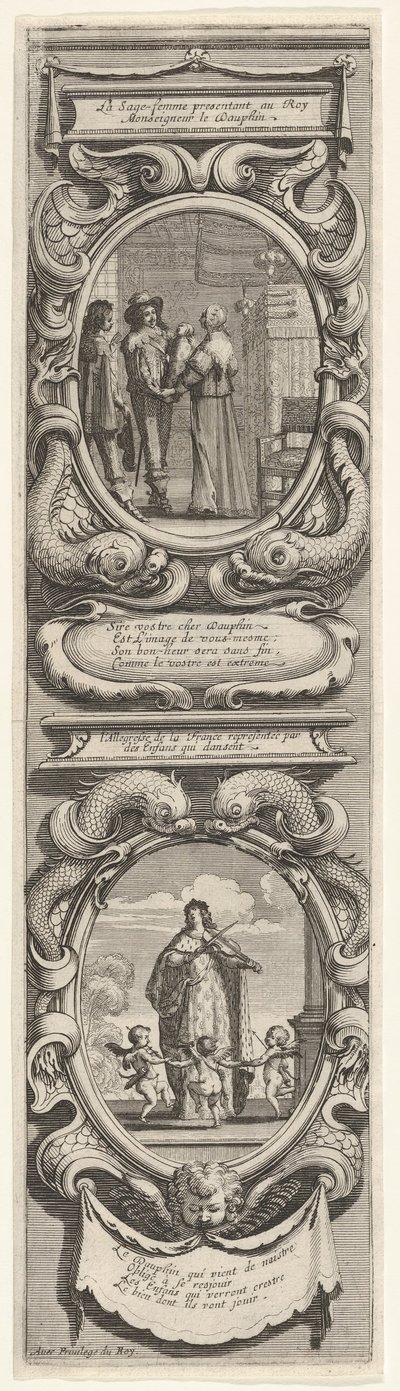 La Sage-femme presentant au Roy
Monseigneur le Dauphin
Sire vostre cher Dauphin
Est L'image de vous-mesme ;
Son bon-heur sera sans fin,
Comme le vostre est extreme
l'Allegresse de la France representée par
des Enfans qui dansent
Le Dauphin qui vient de naistre
Oblige a se resjouir
Les Enfans qui verront crestre
Le bien dont ils vont jouir.
Avec Privilege du Roy.